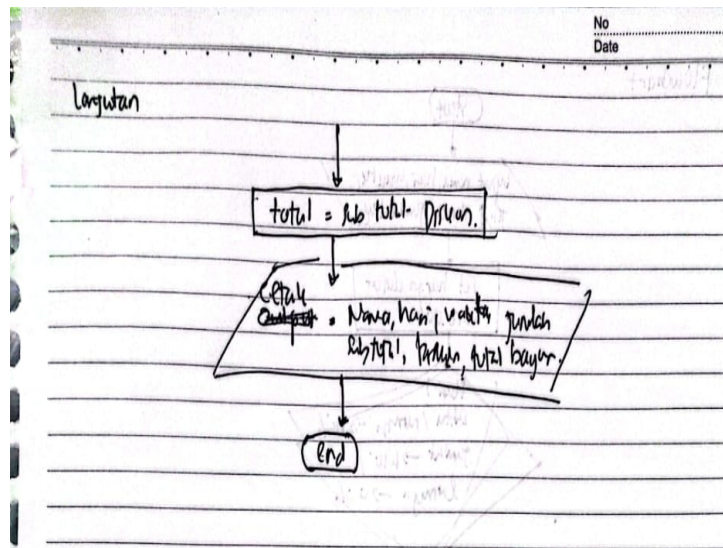 No
Date
Lanjutan
total = sub total - Diskon.
Cetak
Output = Nama, hari, waktu, jumlah
Subtotal, Diskon, total bayar.
End